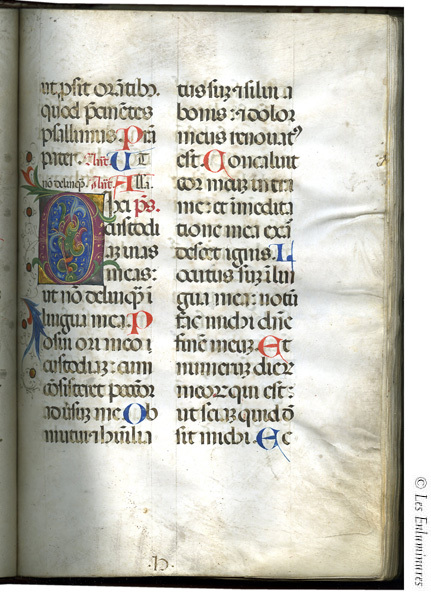 ut ꝓsit orātibꝯ.
quod pēnētes
psallimus. Prā
piter. Añt. UT
nō delinqꝫ. Añt. Alla.
Dixi ps.
custodi
aꝫ uias
meas:
ut nō delinquā ī
lingua mea. P
osui ori meo
custodiaꝫ: cum
cōsisteret peccator
aduersuꝫ me. Ob
mutui ⁊ humilia
tus suꝫ ⁊ silui a
bonis: ⁊ dolor
meus renouatꝰ
est. Concaluit
cor meuꝫ intra
me: et ī medita
tione mea exar
descet ignis. L
ocutus suꝫ ī lin
gua mea: notū
fac michi dñe
finē meuꝫ. Et
numeruꝫ dierū
meoꝝ qui est:
ut sciaꝫ quid de
sit michi. Ec
© Les Enluminures